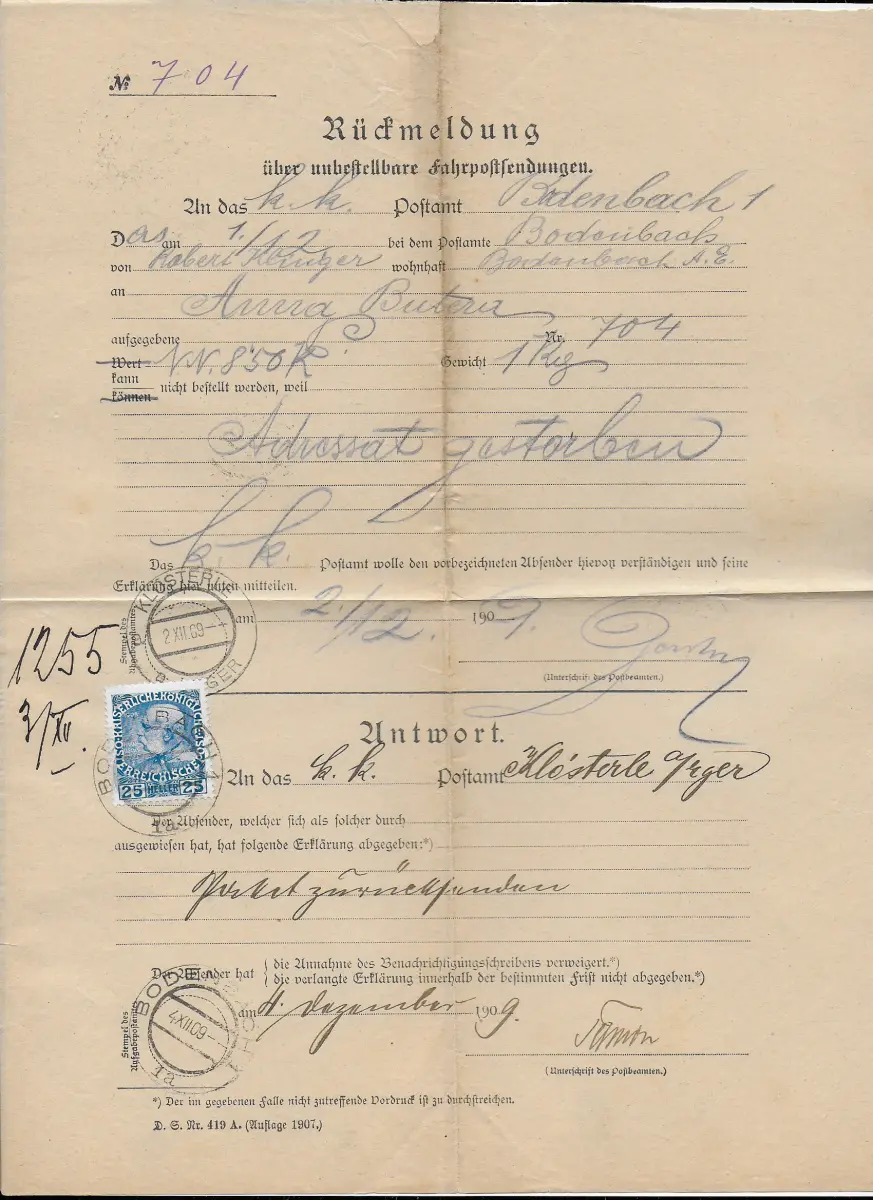 № 704
Rückmeldung
über unbestellbare Fahrpostsendungen.
An das k. k. Postamt Bodenbach 1
Das am 1./12 bei dem Postamte Bodenbach
von wohnhaft Bodenbach A. E.
an Anna
aufgegebene Nr. 704
Wert N.N. 8'50 K Gewicht 1 Kg
kann
können nicht bestellt werden, weil
Adressat gestorben
Das k. k. Postamt wolle den vorbezeichneten Absender hievon verständigen und seine
Erklärung hier unten mitteilen.
KLÖSTERLE
2 XII.09
EGER
Stempel des
am 2./12. 1909.
(Unterschrift des Postbeamten.)
1255
3/XII.
Antwort.
BODENBACH 1
1a
25 HELLER 25
An das k. k. Postamt Klösterle a/Eger
Der Absender, welcher sich als solcher durch
ausgewiesen hat, hat folgende Erklärung abgegeben:*)
Packet zurücksenden
Der Absender hat { die Annahme des Benachrichtigungsschreibens verweigert.*)
{ die verlangte Erklärung innerhalb der bestimmten Frist nicht abgegeben.*)
BODENBACH 1
4 XII.09
1a
Stempel des
Aufgabepostamtes
am 4. Dezember 1909.
(Unterschrift des Postbeamten.)
*) Der im gegebenen Falle nicht zutreffende Vordruck ist zu durchstreichen.
D. S. Nr. 419 A. (Auflage 1907.)